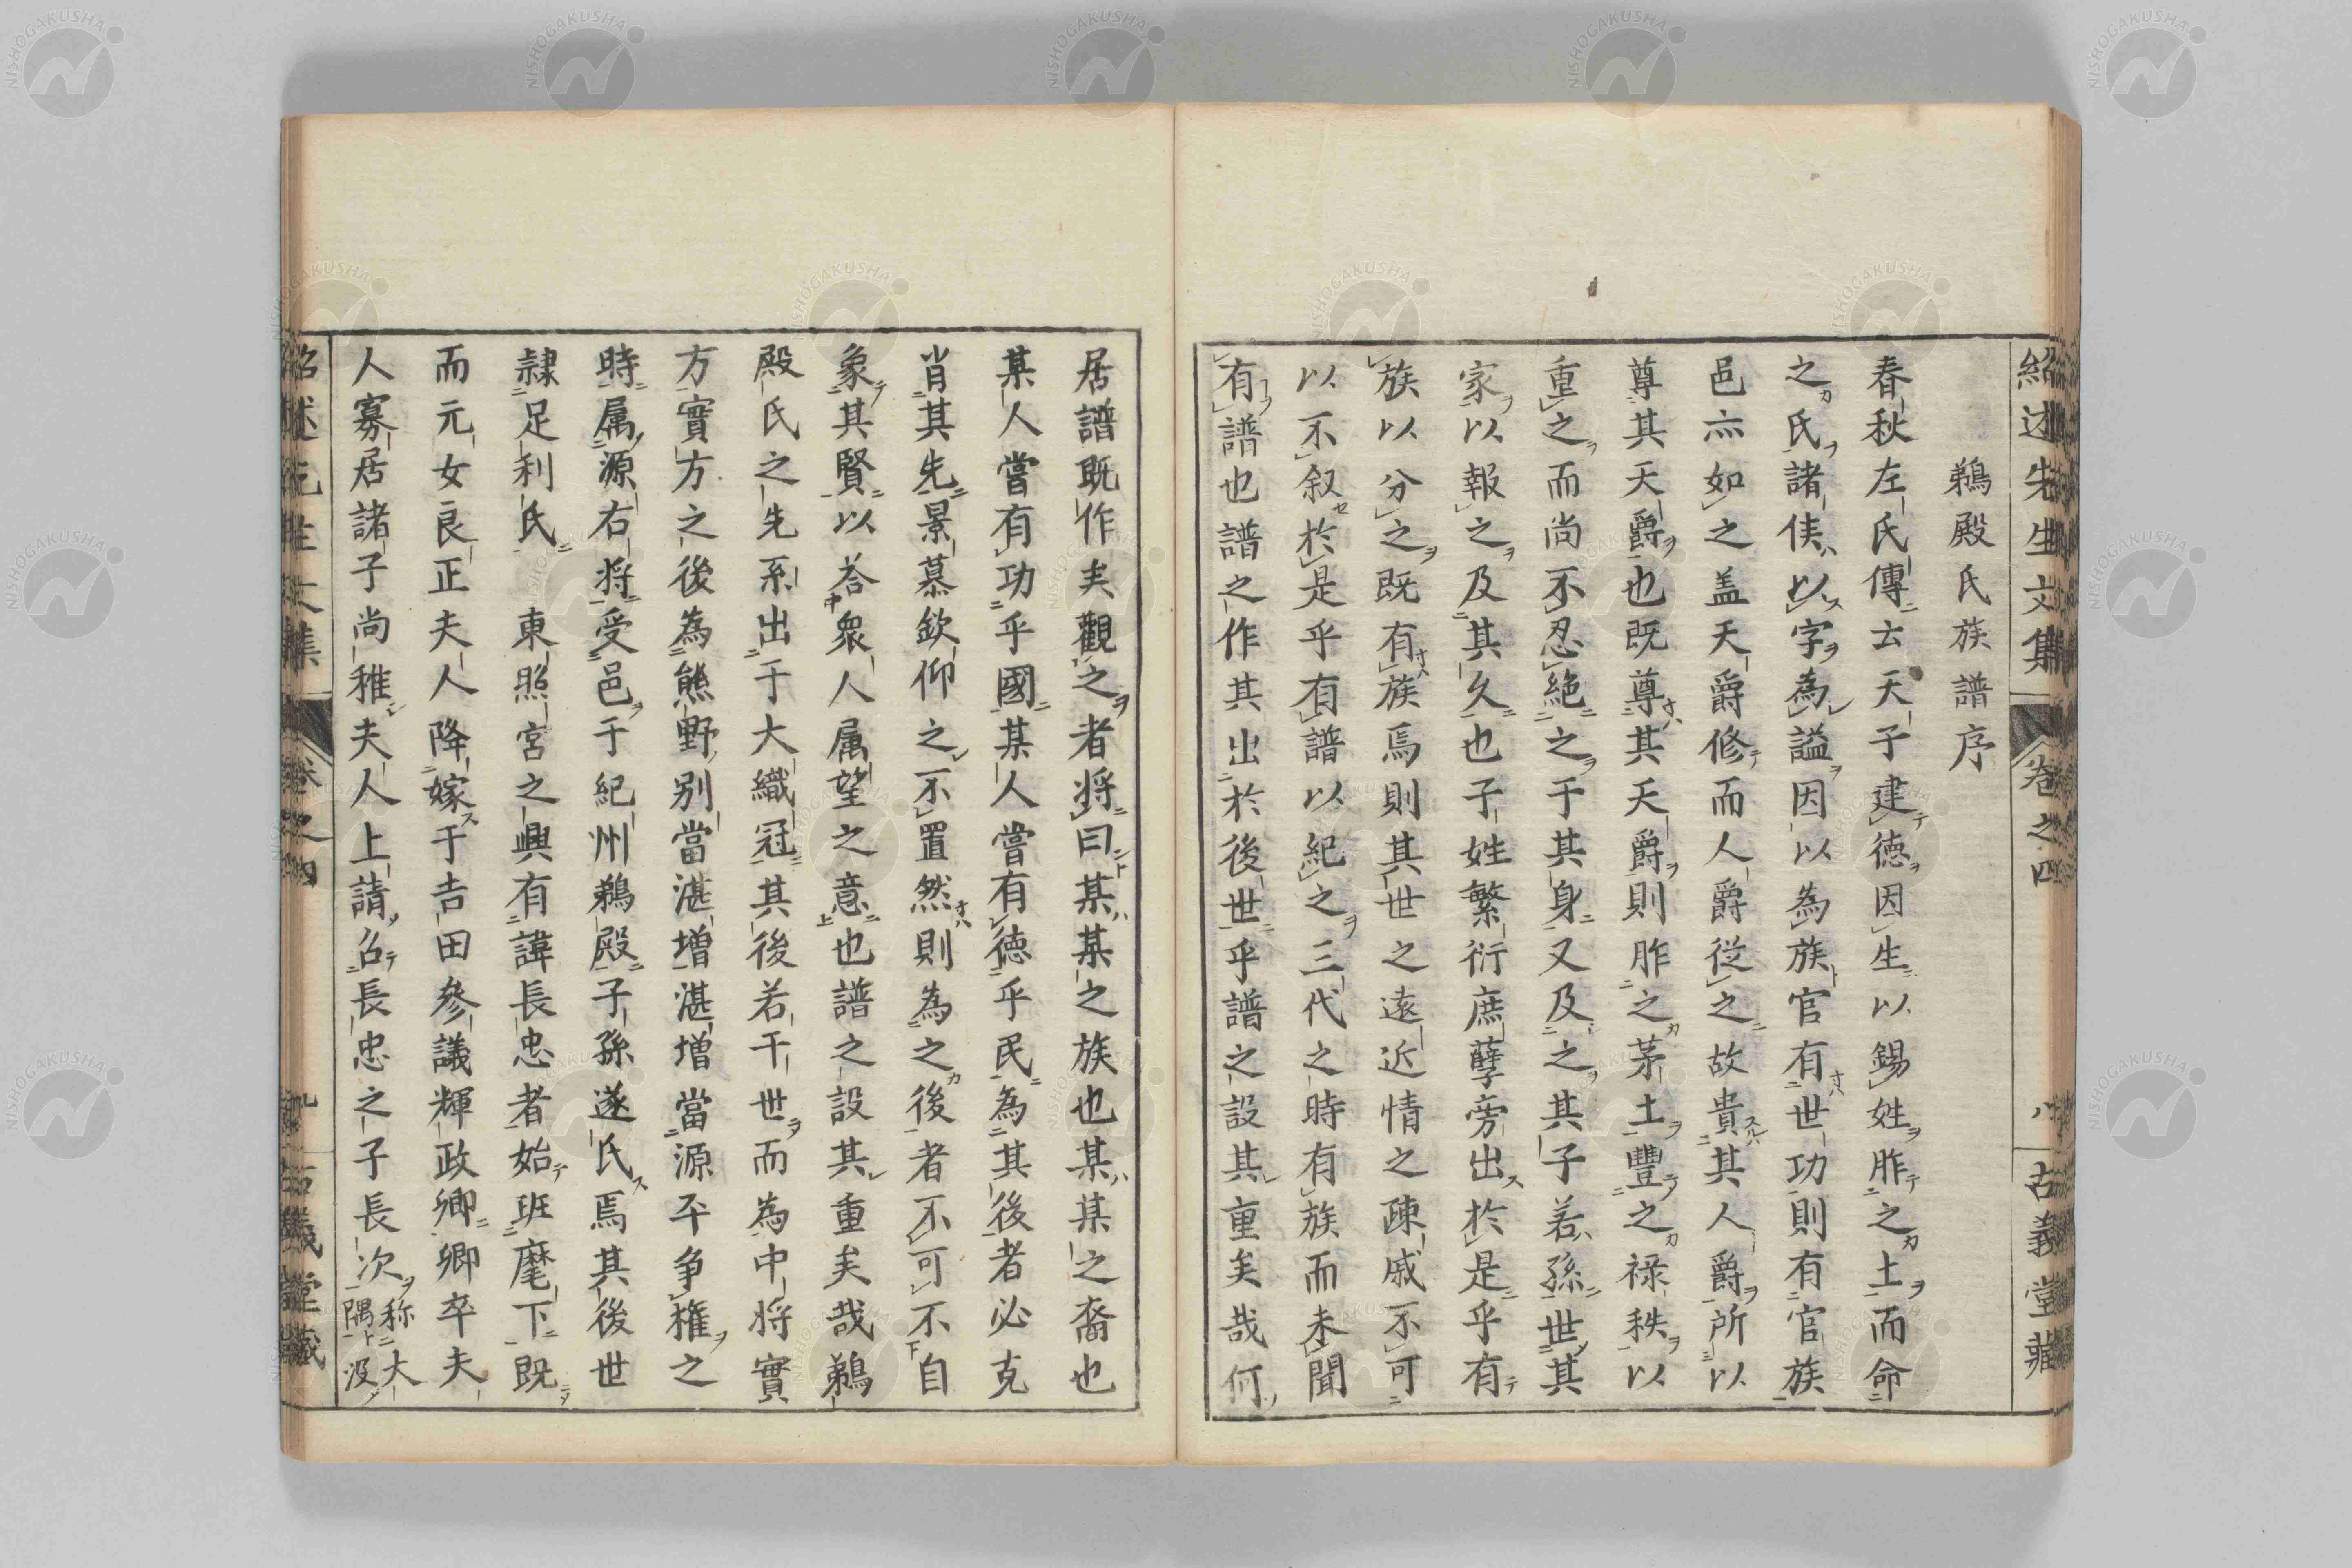 紹述先生文集 卷之四 八 古義堂藏
鵜殿氏族譜序
春秋左氏傳云天子建徳因生以錫姓胙之土而命
之氏諸侯以字為謚因以為族官有世功則有官族
邑亦如之盖天爵修而人爵従之故貴其人爵所以
尊其天爵也既尊其天爵則胙之茅土豐之禄秩以
重之而尚不忍絶之于其身又及之其子若孫世其
家以報之及其久也子姓繁衍庶孽旁出於是乎有
族以分之既有族焉則其世之遠近情之疎戚不可
以不叙於是乎有譜以紀之三代之時有族而未聞
有譜也譜之作其出於後世乎譜之設其重矣哉何
居譜既作矣觀之者將曰某某之族也某某之裔也
某人嘗有功乎國某人嘗有徳乎民為其後者必克
肖其先景慕欽仰之不置然則為之後者不可不自
象其賢以荅衆人属望之意也譜之設其重矣哉鵜
殿氏之先系出于大織冠其後若干世而為中将實
方實方之後為熊野別當湛増湛増當源平争權之
時属源右将受邑于紀州鵜殿子孫遂氏焉其後世
隷足利氏 東照宮之興有諱長忠者始班麾下既
而元女良正夫人降嫁于吉田參議輝政卿卿卒夫
人寡居諸子尚稚夫人上請召長忠之子長次称大
隅汲
紹述先生文集 卷之四 九 古義堂藏